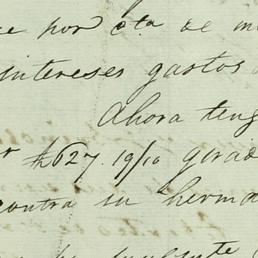 e por cta de m
intereses gastos
Ahora teng
₶627. 19/10 girad
contra su herma